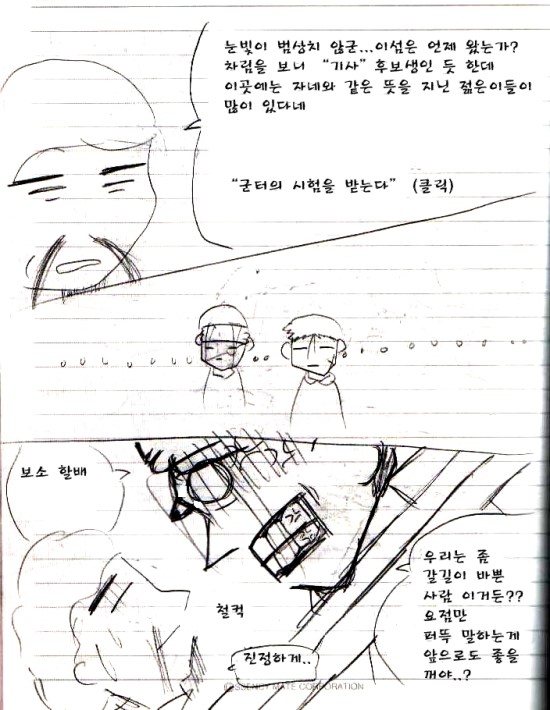 눈빛이 범상치 않군...이섬은 언제 왔는가?
차림을 보니 "기사" 후보생인 듯 한데
이곳에는 자네와 같은 뜻을 지닌 젊은이들이
많이 있다네
"군터의 시험을 받는다" (클릭)
보소 할배
우리는 좀
갈길이 바쁜
사람 이거든??
요점만
텨뚝 말하는게
앞으로도 좋을
꺼야..?
철컥
진정하게..
MATE CORPORATION